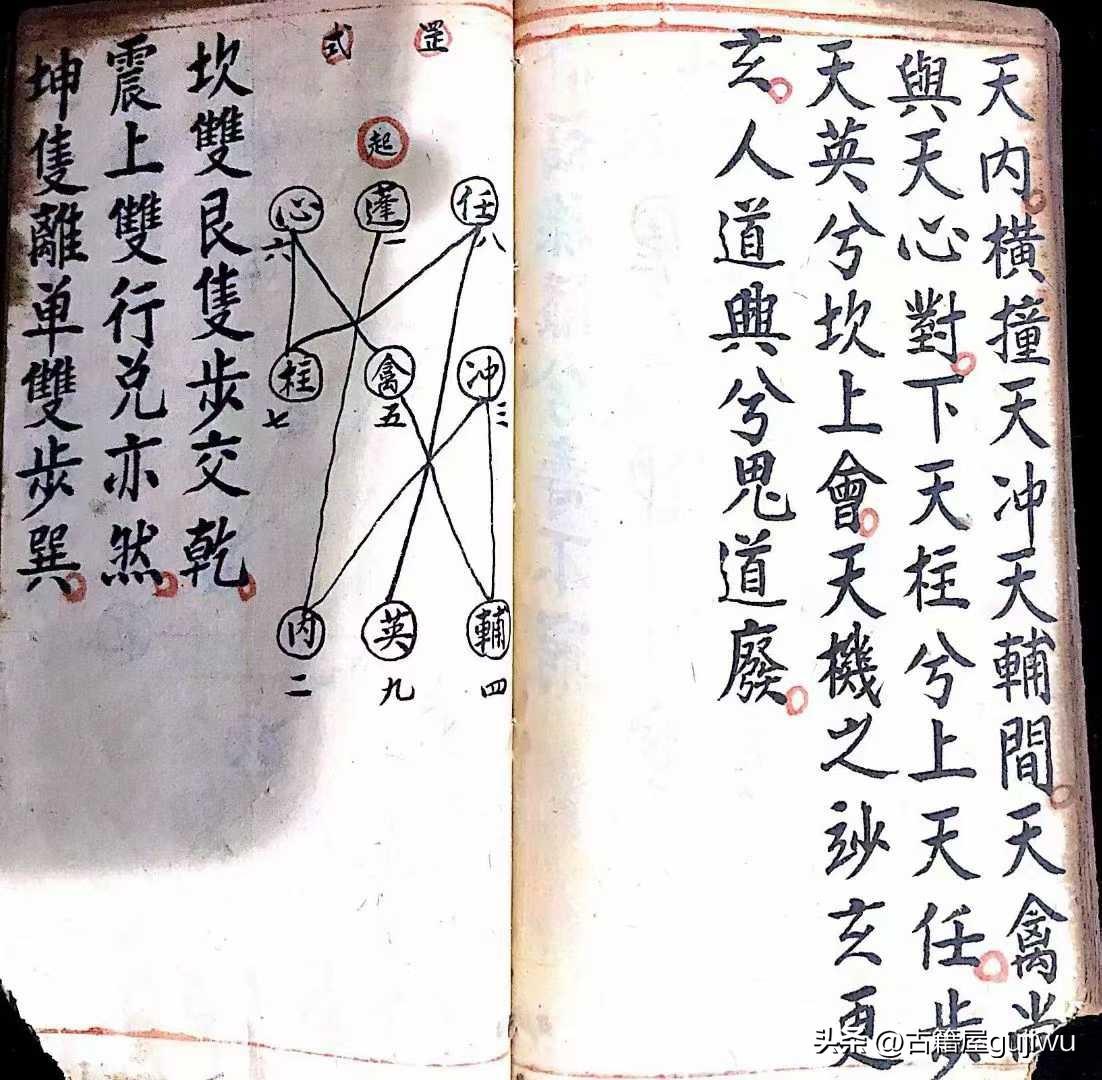 天内橫撞天冲天輔間天禽當
與天心對下天柱兮上天任步
天英兮坎上會天機之玅玄更
玄人道興兮鬼道廢
罡式
起
心 蓬 任
六 一 八
柱 禽 冲
七 五 三
内 英 輔
二 九 四
坎雙艮隻步交乾
震上雙行兑亦然
坤隻離单雙步巽
头条 @古籍屋gujiwu